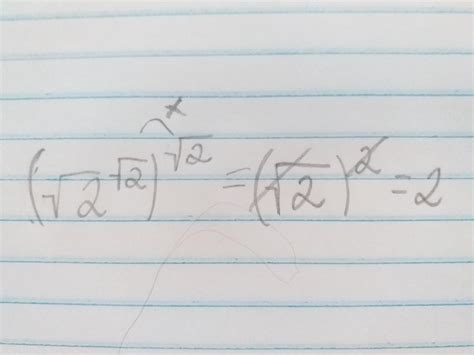 (√2^√2)^√2 = (√2)^2 = 2